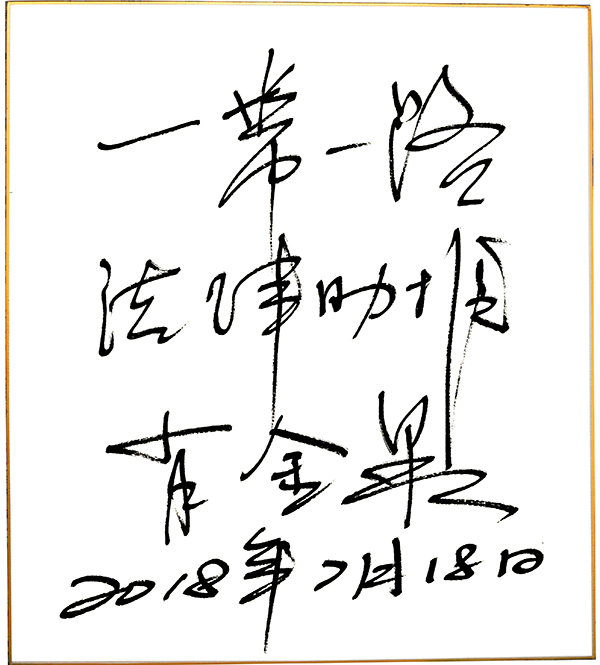 一带一路
法律助推
肖金泉
2018年7月18日